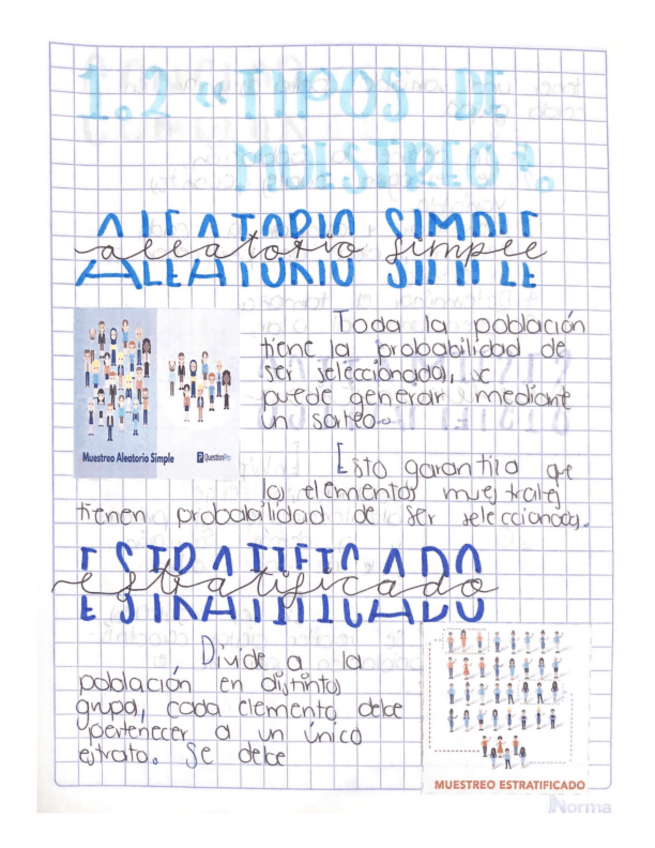 1.2 "TIPOS DE
MUESTREO".
ALEATORIO SIMPLE
aleatorio simple
Toda la población
tiene la probabilidad de
ser seleccionada, se
puede generar mediante
un sorteo.
Muestreo Aleatorio Simple
QuestionPro
Esto garantiza que
los elementos muestrales
tienen probabilidad de ser seleccionados.
ESTRATIFICADO
estratificado
Divide a la
población en distintos
grupos, cada elemento debe
pertenecer a un único
estrato. Se debe
MUESTREO ESTRATIFICADO
Norma